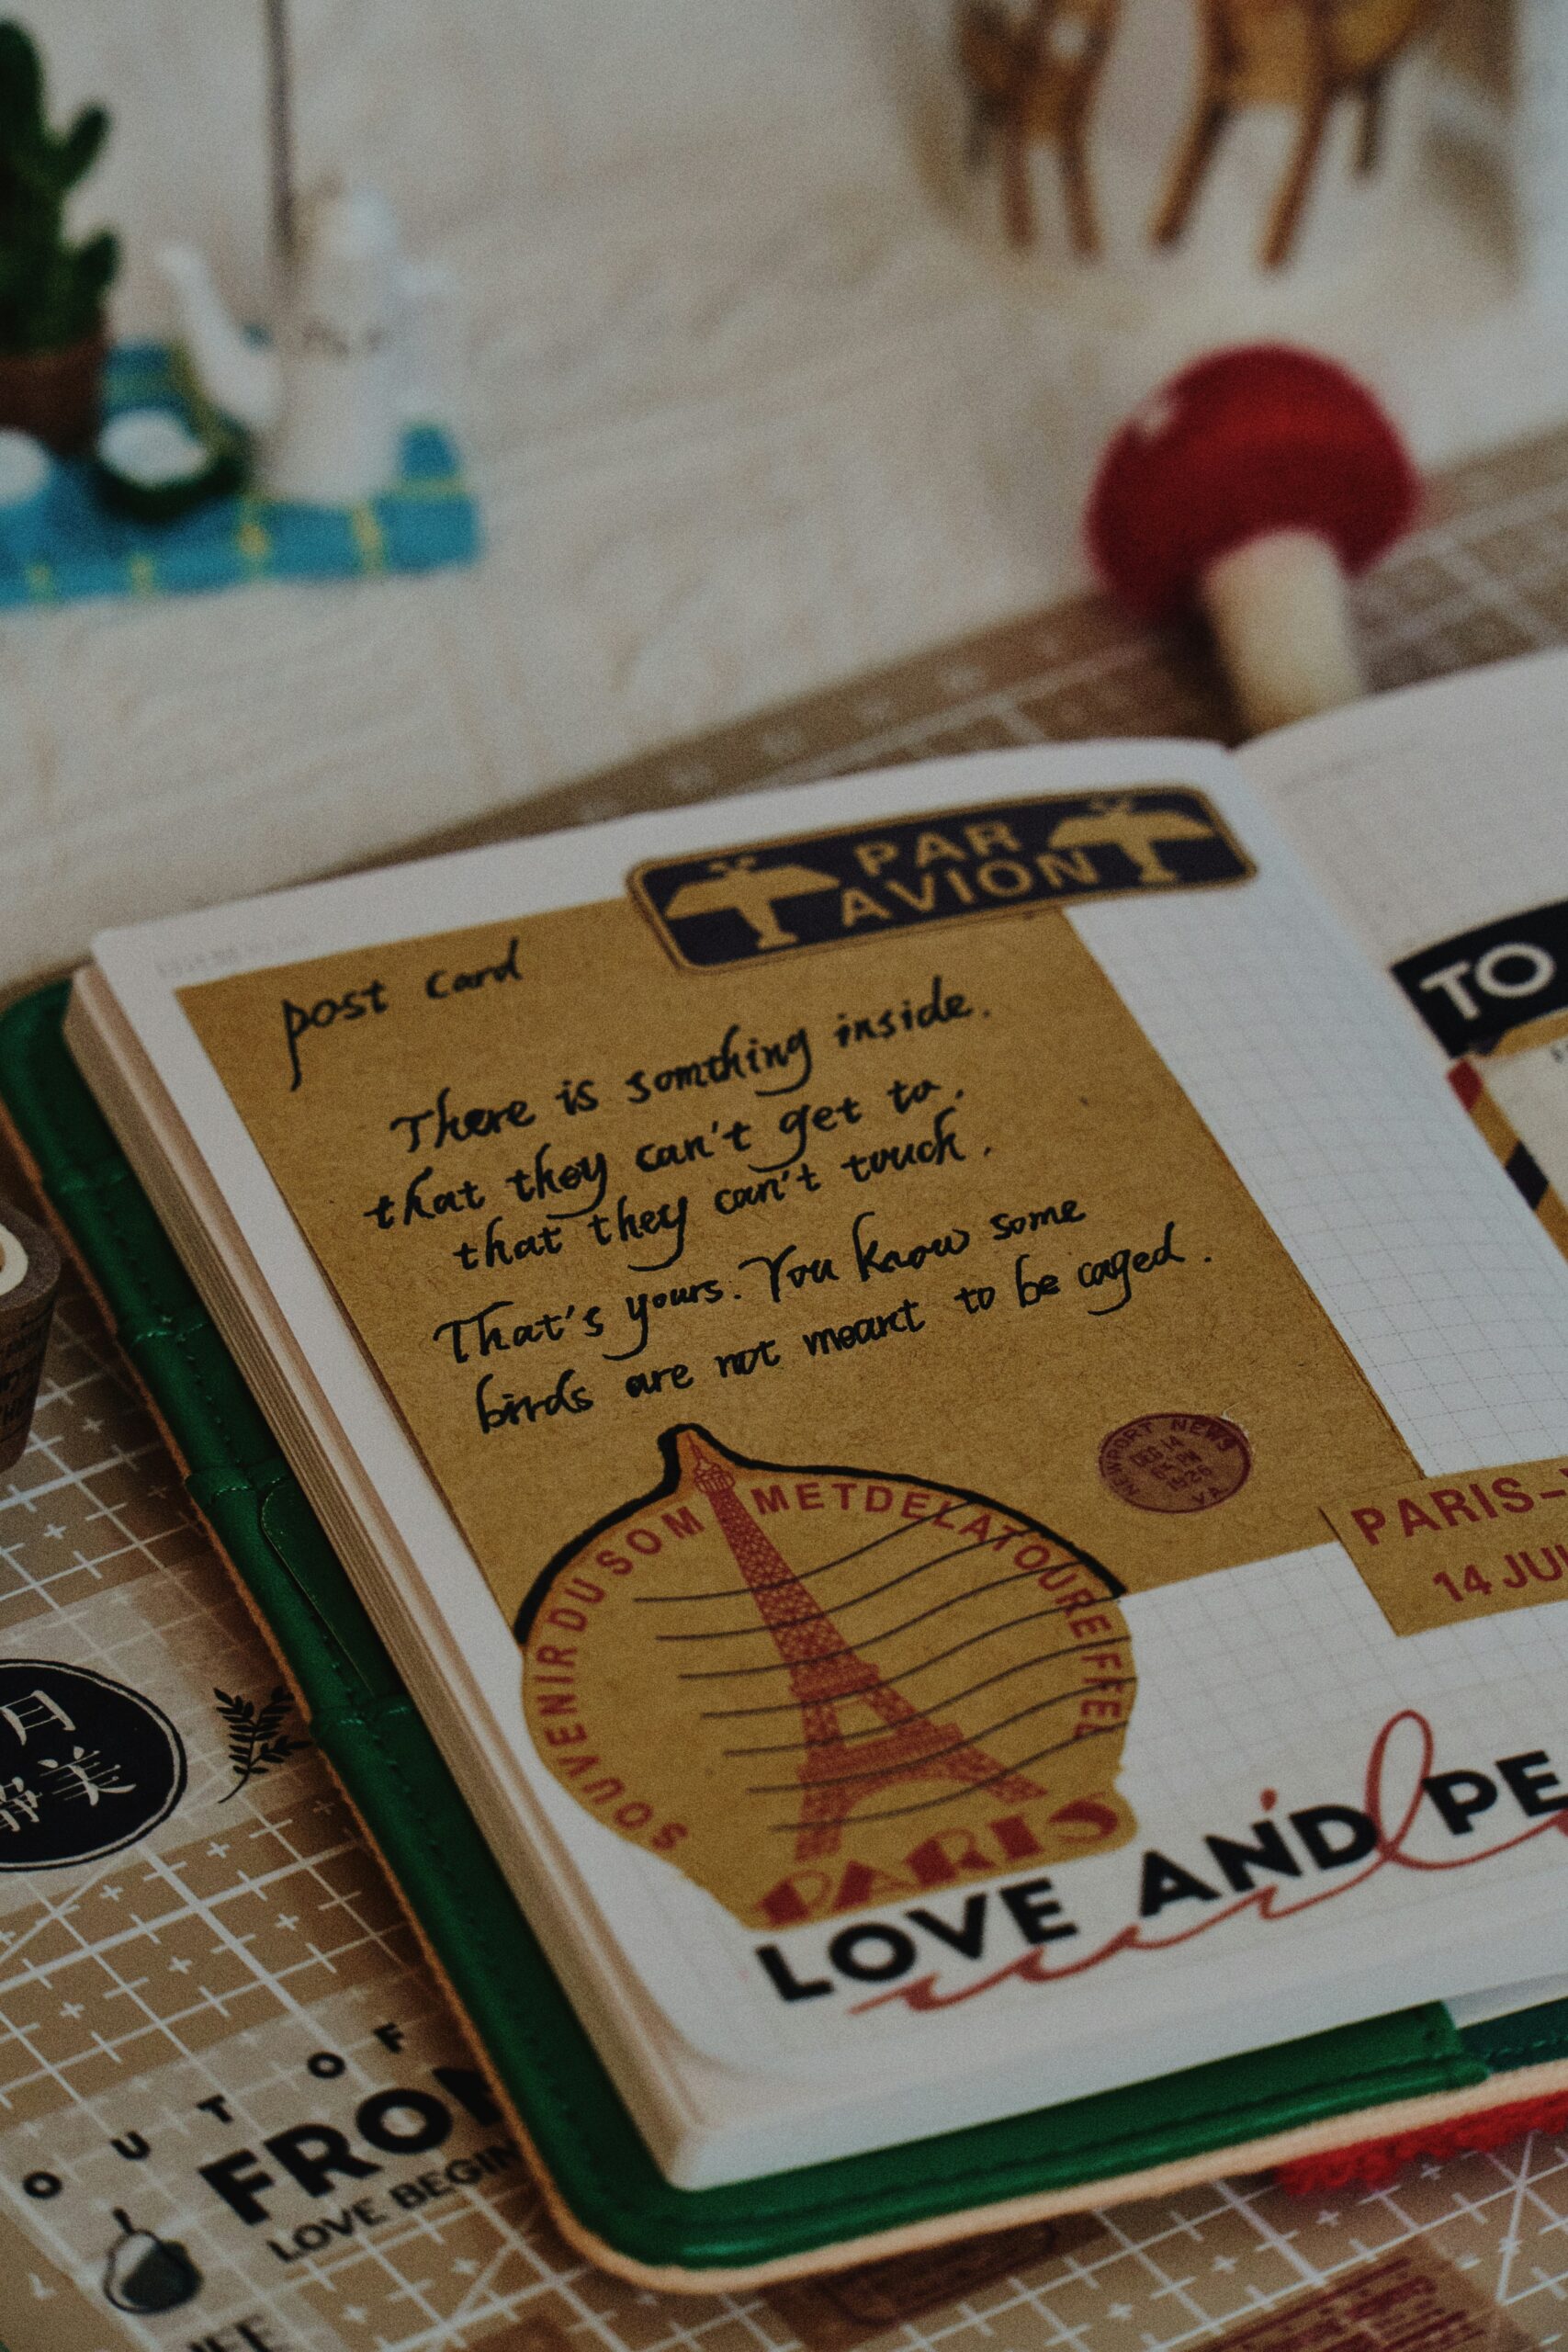 PAR
AVION
post card
There is somthing inside.
that they can't get to.
that they can't touch.
That's yours. You know some
birds are not meant to be caged.
NEWPORT NEWS
DEC 14
1926
VA.
SOUVENIR DU SOMMET DE LA TOUR EIFFEL
PARIS
LOVE AND PE
TO
PARIS-
14 JUI
月
静美
OUT OF
FROM
LOVE BEGIN